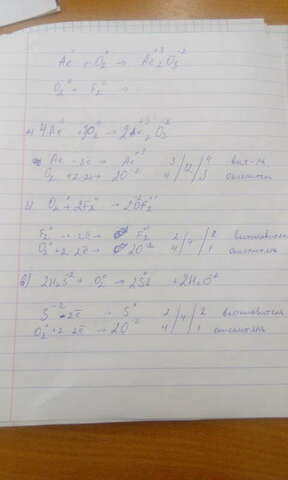 Al⁰ + O₂⁰ → Al₂⁺³O₃⁻²
O₂⁰ + F₂⁰ →
а) 4Al⁰ + 3O₂⁰ → 2Al₂⁺³O₃⁻²
Al⁰ - 3ē → Al⁺³ 3 / 12 / 4 вос-ль
O₂ + 2·2ē → 2O⁻² 4 / / 3 окислител
б) O₂⁰ + 2F₂⁰ → 2OF₂
F₂⁰ 2ē F₂ 2 / 4 / 2 восстановитель
O₂⁰ + 2·2ē → 2O⁻² 4 / / 1 окислитель
в) 2H₂S⁻² + O₂⁰ → 2S⁰ + 2H₂O⁻²
S⁻² - 2ē → S⁰ 2 / 4 / 2 восстановитель
O₂⁰ + 2·2ē → 2O⁻² 4 / / 1 окислитель